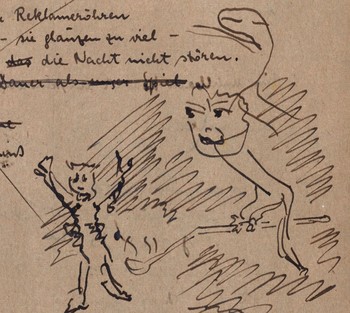 Reklameröhren
– sie glänzen zu viel –
das die Nacht nicht stören.
Dauer als unser Spiel